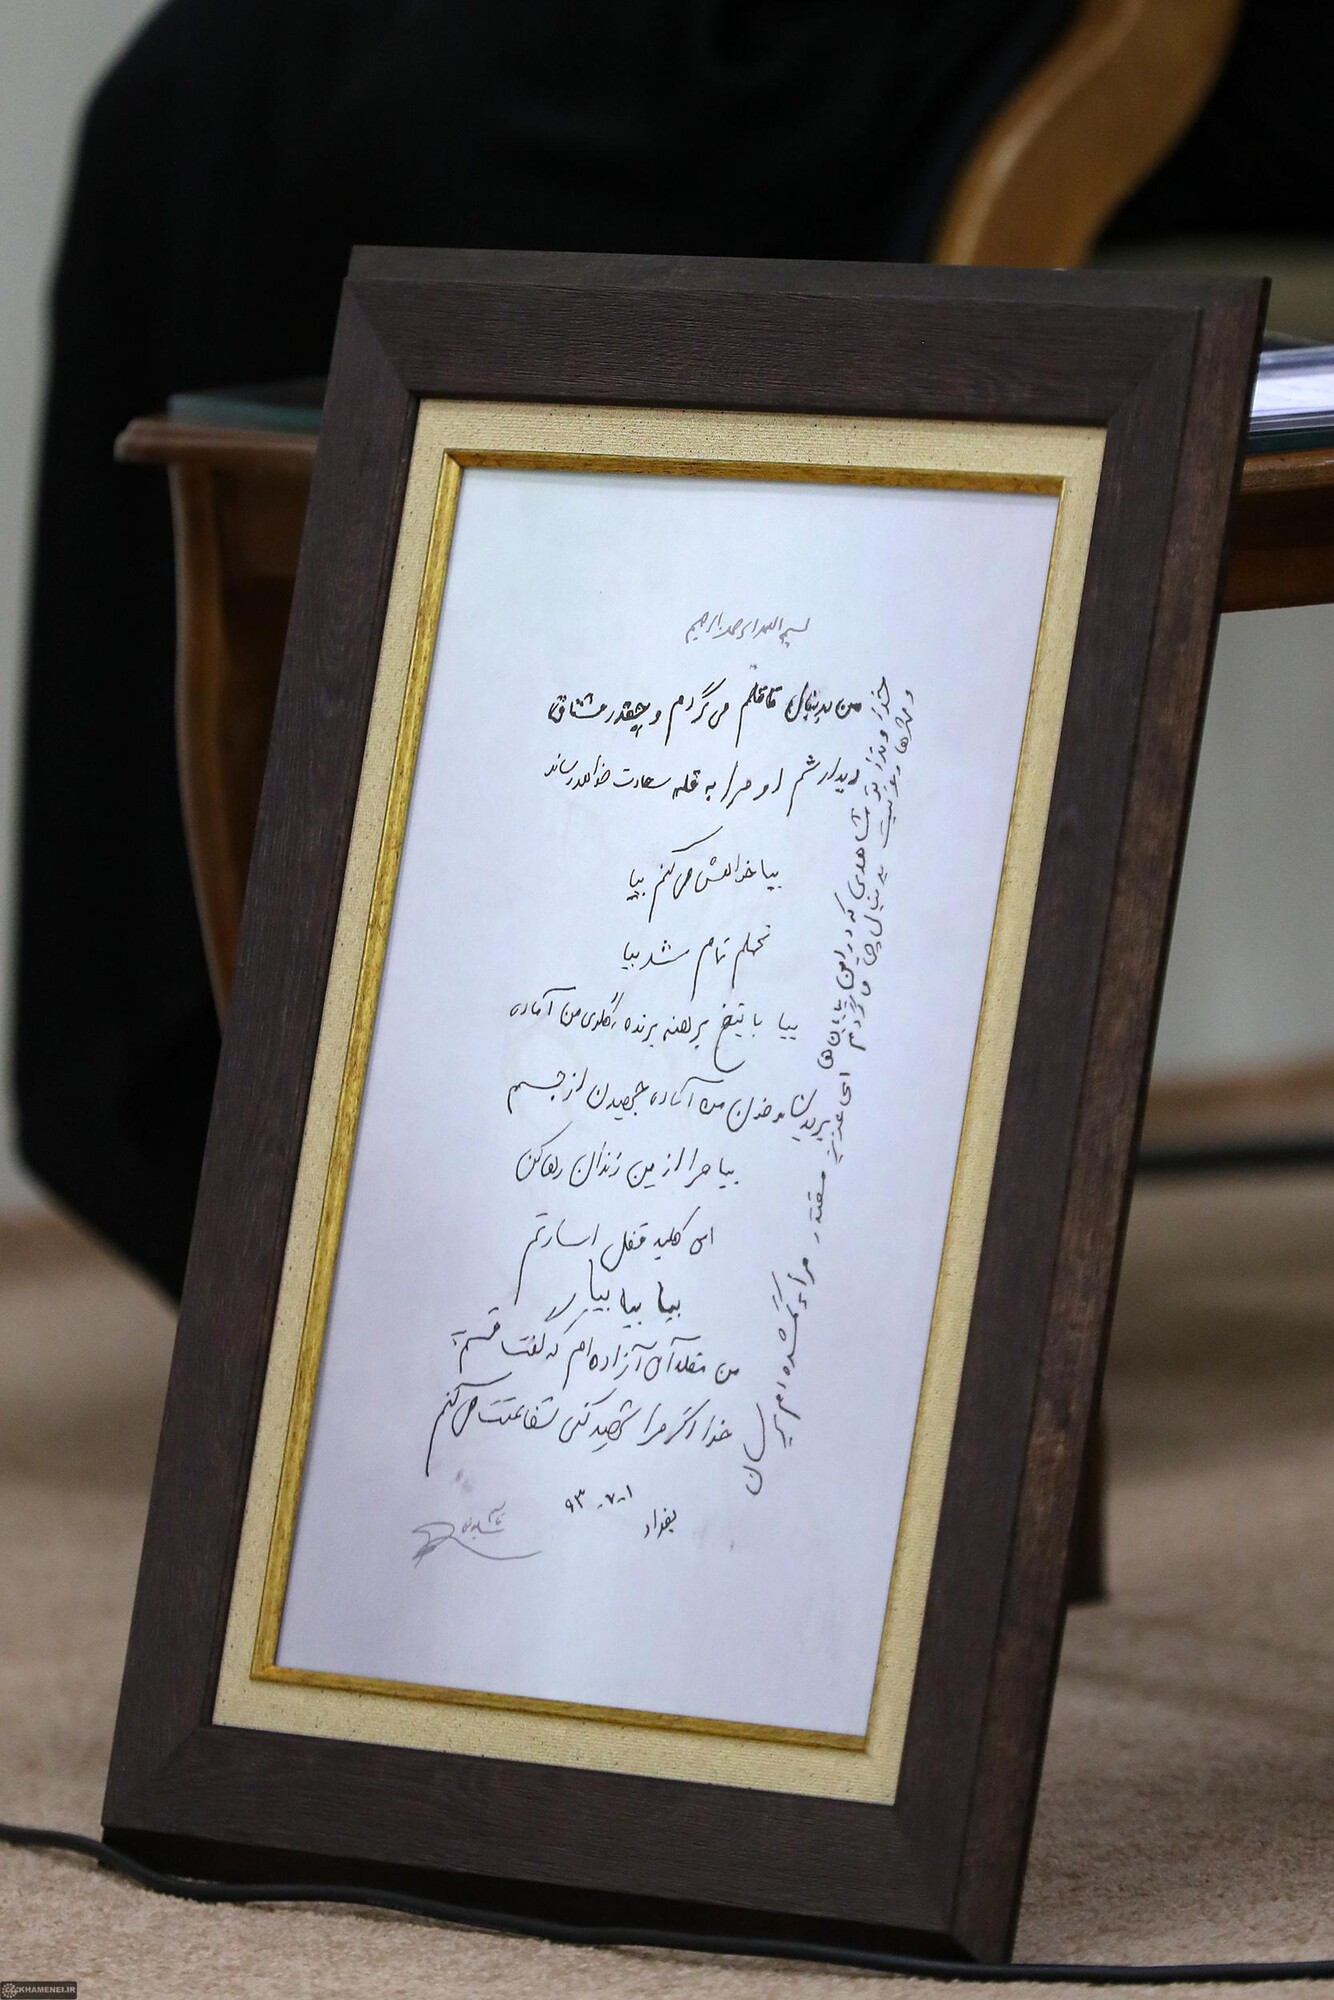 بسم الله الرحمن الرحیم
من بدنبال قاتلم می گردم و چقدر مشتاق
دیدارشم او مرا به قله سعادت خواهد رساند
بیا خواهش می کنم بیا
تحملم تمام شد بیا
بیا با تیغ برهنه برنده گلوی من آماده
بریدن خون من آماده جهیدن از جسم
بیا مرا از این زندان رها کن
ای کلید قفل اسارتم
بیا بیا بیا
من آن آزاده ام که گفت قسم
خدا اگر مرا شهید کنی شفاعتت می کنم
بغداد ۹۳-۷-۱
خداوندا تو شاهدی که در این بیابان ها
و مرزها بدنبال چی می گردم ای عزیز مقتدر مرا به گمشده ام برسان
KHAMENEI.IR